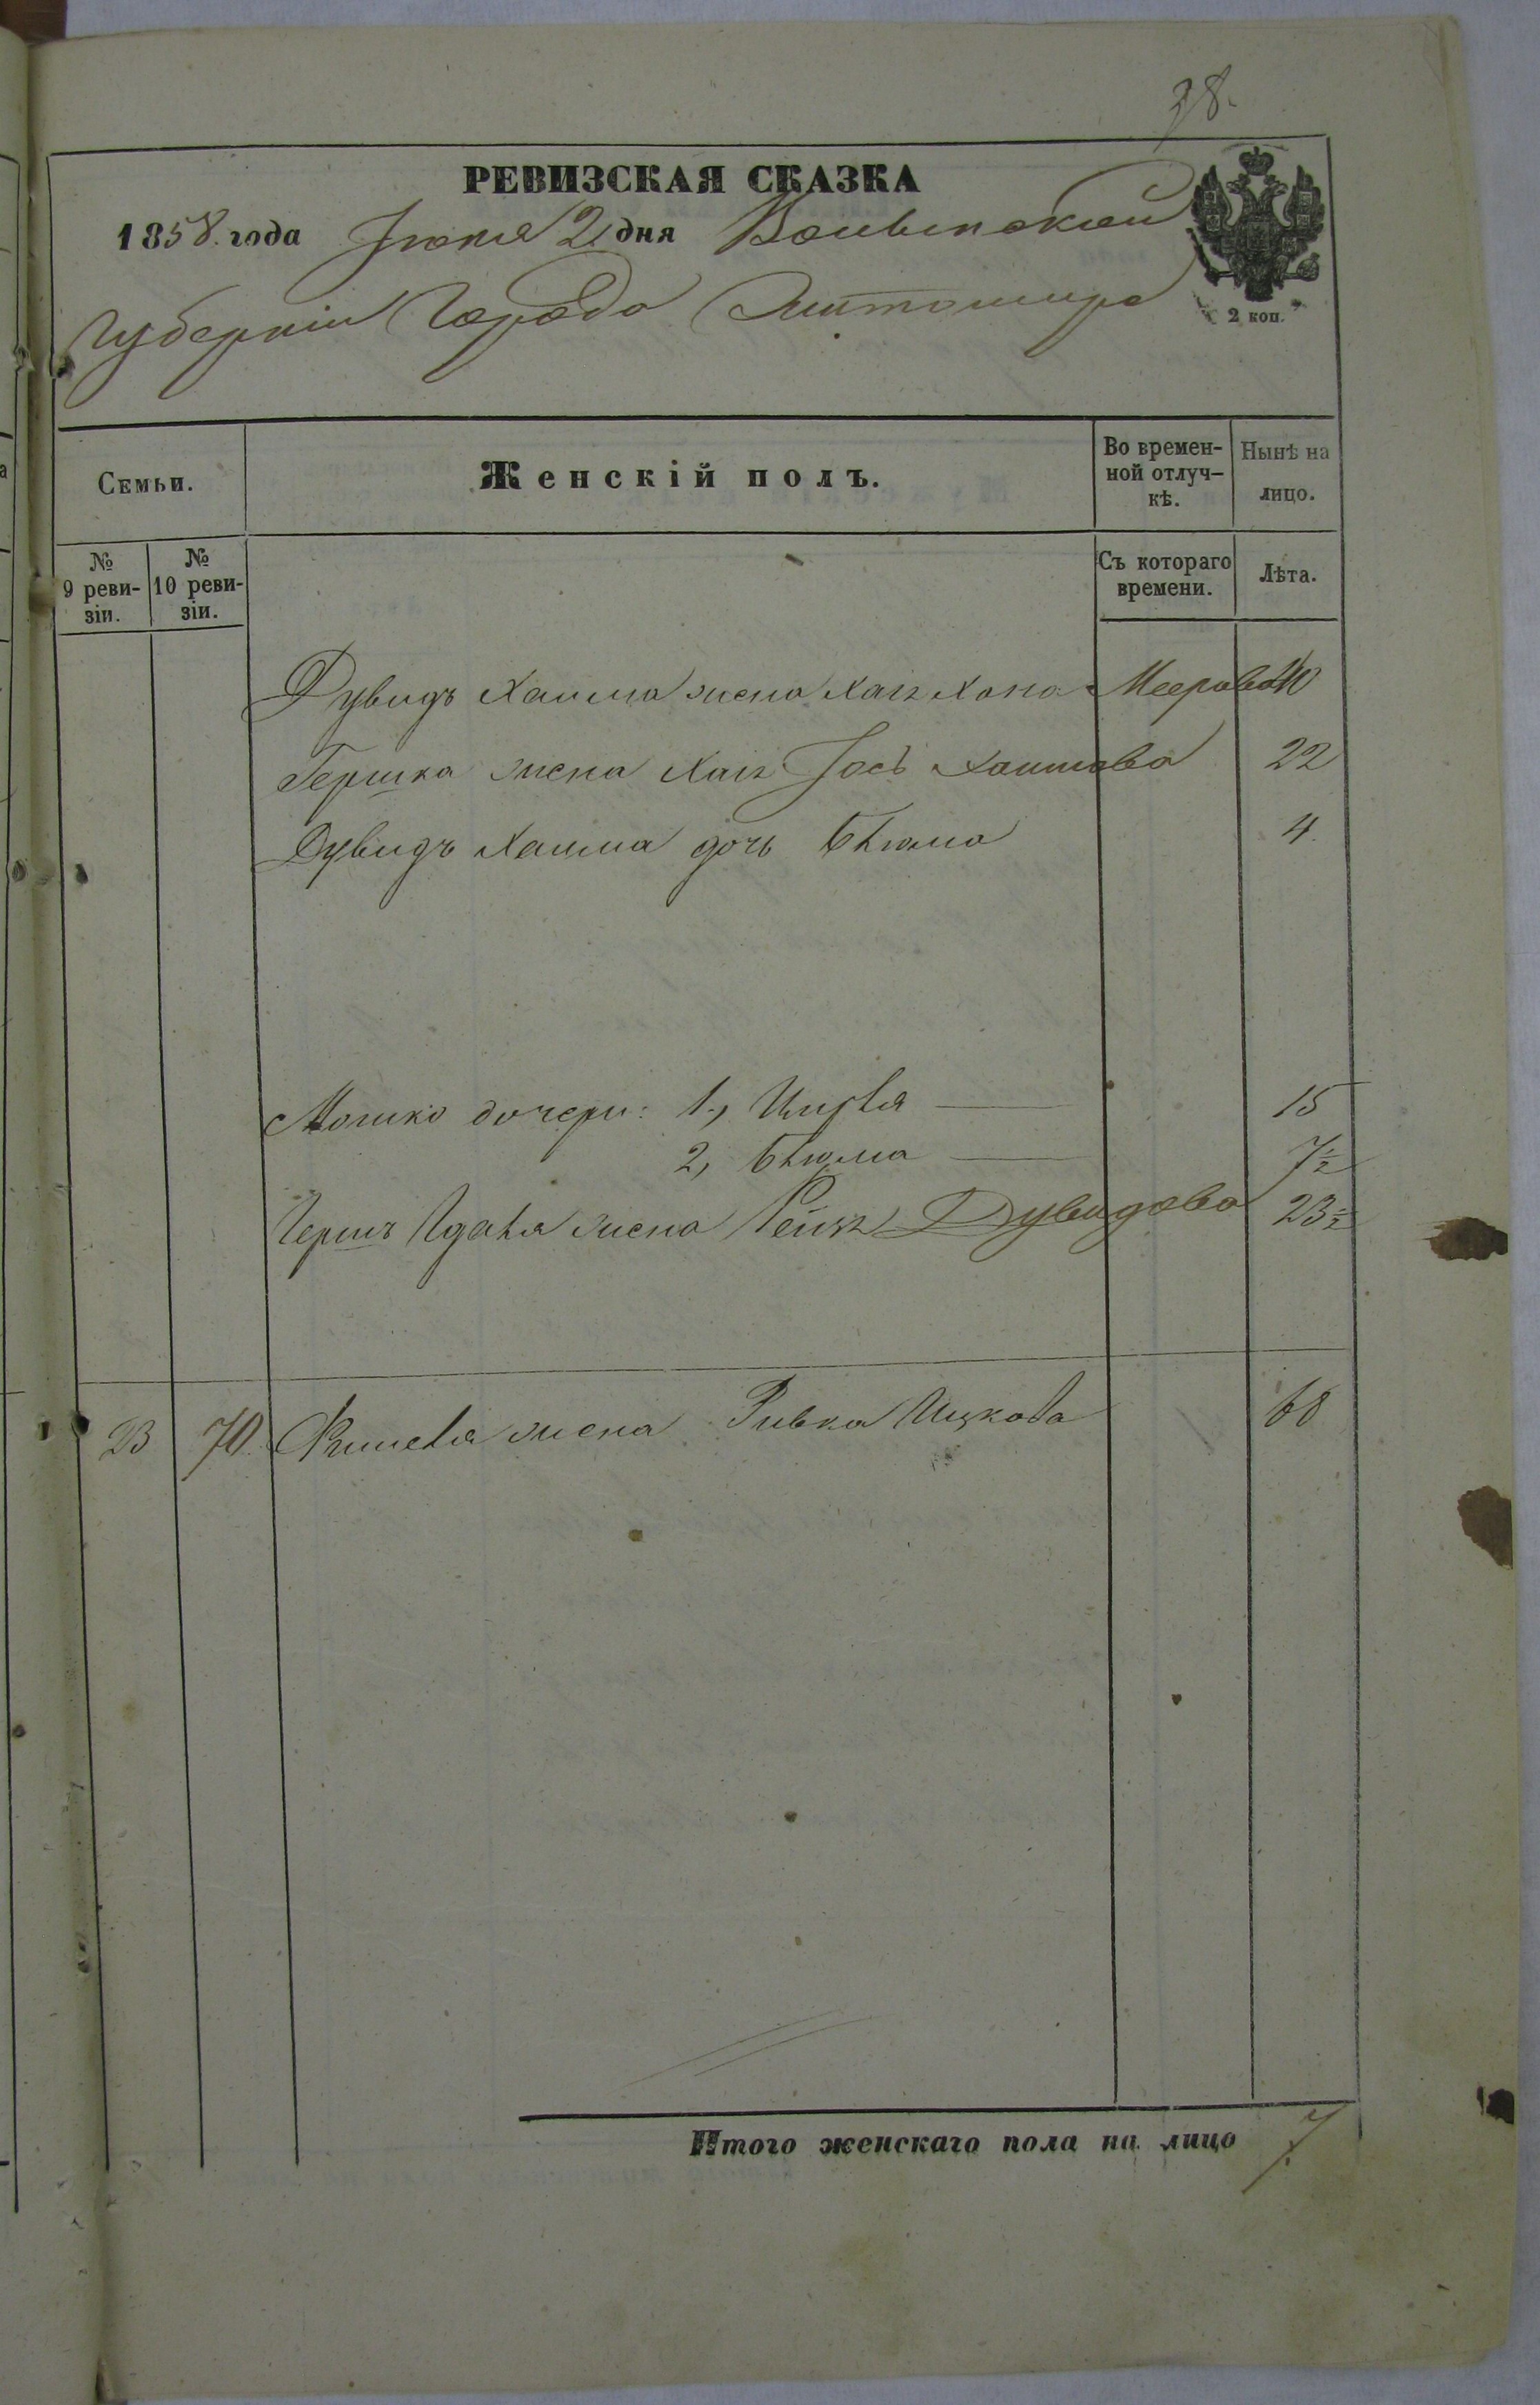 38.
РЕВИЗСКАЯ СКАЗКА
1858. года Іюня 2 дня Волынской
Губерніи Города Житомира
2 коп.
Семьи.
Женскій полъ.
Во времен-
ной отлуч-
кѣ.
Нынѣ на
лицо.
№
9 реви-
зіи.
№
10 реви-
зіи.
Съ котораго
времени.
Лѣта.
Дувидъ Хаима жена Хая Хана Меерова 40
Гершка жена Хая Іось Хаимова 22
Дувидъ Хаима дочь Блюма 4.
Мошко дочери: 1., Цирля 15
2, Блюма 7½
Герш Удаля жена Рейзя Дувидова 23½
23 70. жена Ривка Ицкова 68
Итого женскаго пола на лицо 7.